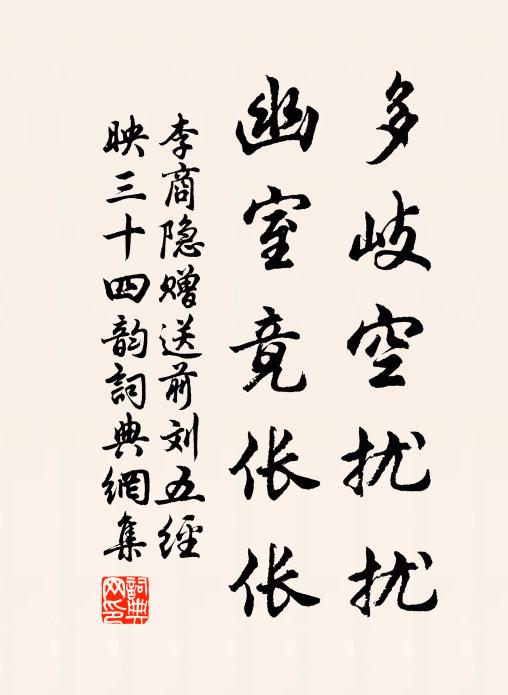 多岐空扰扰
幽室竟伥伥
李商隐赠送前刘五經
映三十四韵詞典網集
詞典网印